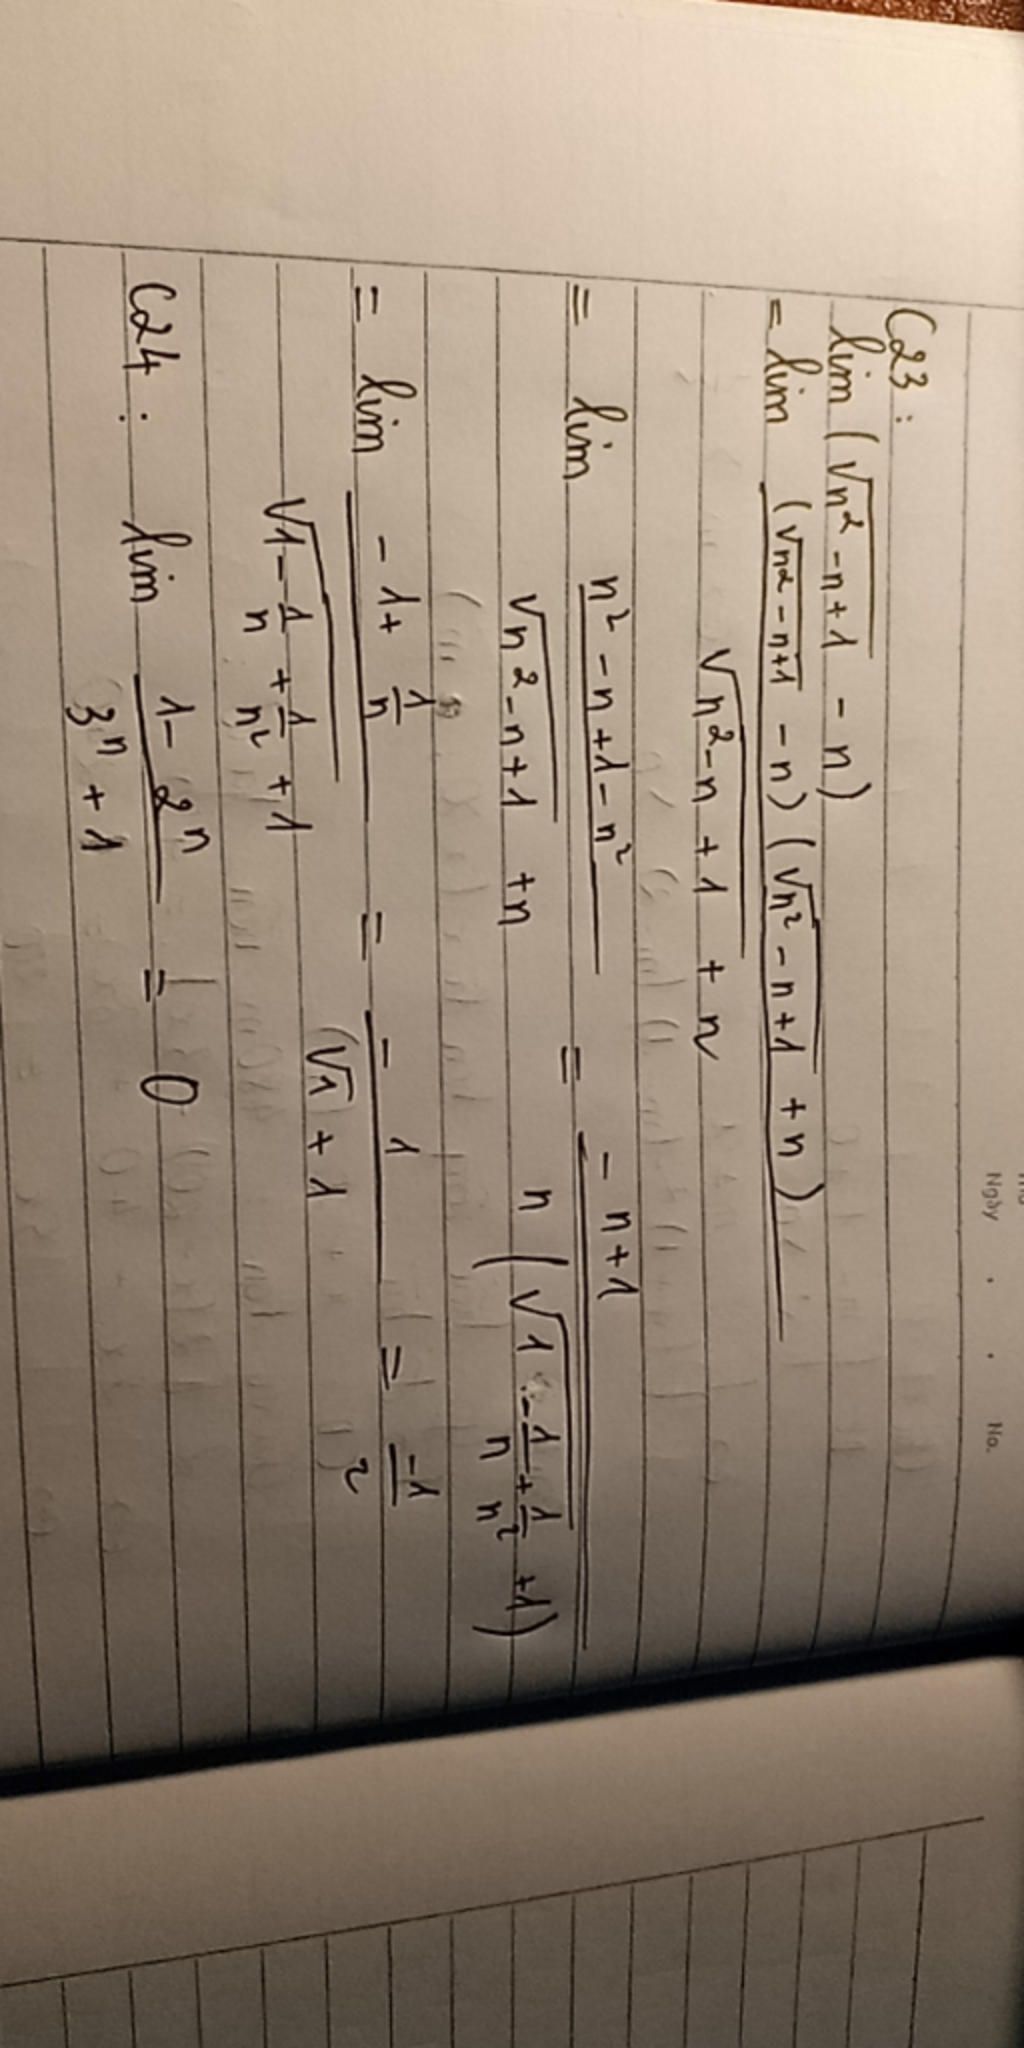 Ngày . . No.
C23 :
lim (√(n² - n + 1) - n)
= lim ((√(n² - n + 1) - n) (√(n² - n + 1) + n)) / (√(n² - n + 1) + n)
= lim (n² - n + 1 - n²) / (√(n² - n + 1) + n) = (- n + 1) / (n (√(1 - 1/n + 1/n²) + 1))
= lim (- 1 + 1/n) / (√(1 - 1/n + 1/n²) + 1) = - 1 / (√1 + 1) = -1/2
C24 : lim (1 - 2ⁿ) / (3ⁿ + 1) = 0